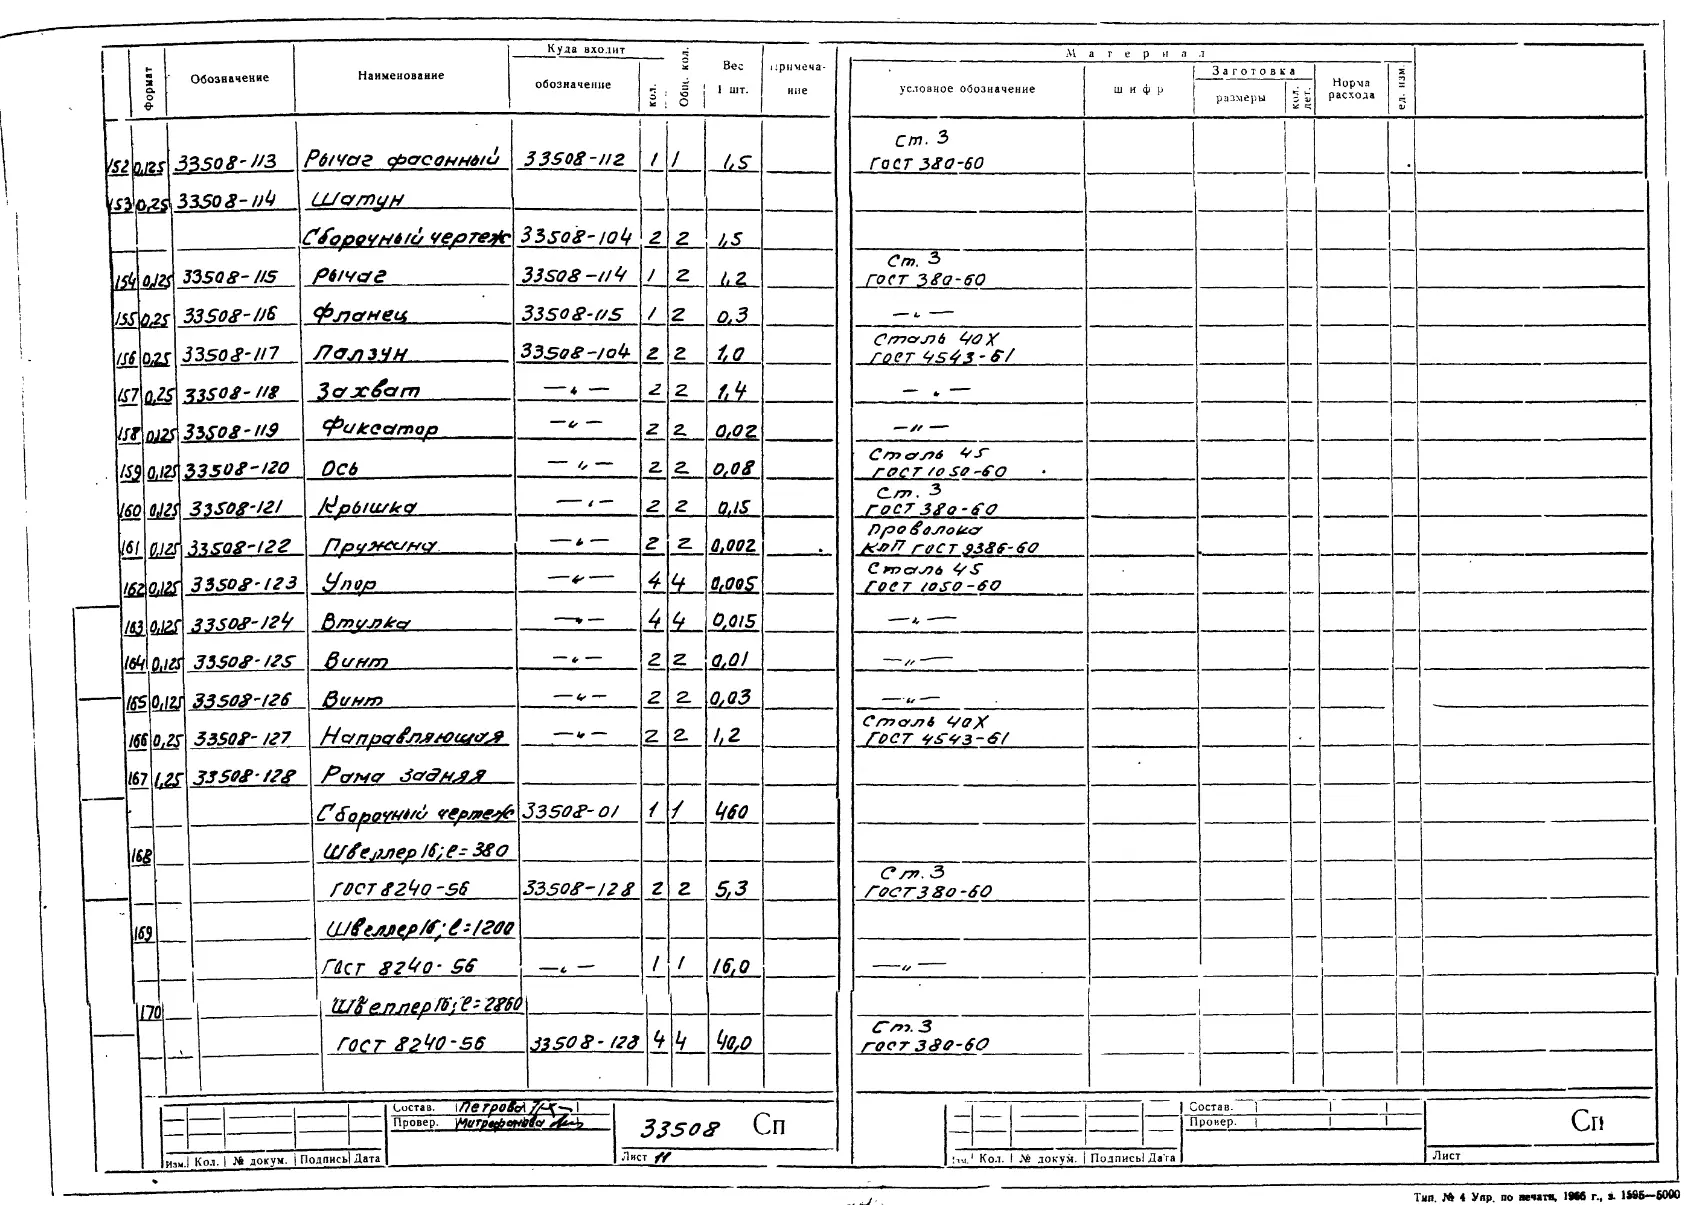 Формат Обозначение Наименование Куда входит обозначение кол. Общ. кол. Вес 1 шт. примеча-ние Материал условное обозначение шифр Заготовка размеры кол. дет. Норма расхода ед. изм.
Ст. 3
152 0,125 33508-113 Рычаг фасонный 33508-112 1 1 1,5 ГОСТ 380-60
153 0,25 33508-114 Шатун
Сборочный чертеж 33508-104 2 2 1,5
Ст. 3
154 0,125 33508-115 Рычаг 33508-114 1 2 1,2 ГОСТ 380-60
155 0,25 33508-116 Фланец 33508-115 1 2 0,3 — " —
Сталь 40Х
156 0,25 33508-117 Ползун 33508-104 2 2 1,0 ГОСТ 4543-61
157 0,25 33508-118 Захват — " — 2 2 1,4 — " —
158 0,125 33508-119 Фиксатор — " — 2 2 0,02 — " —
Сталь 45
159 0,125 33508-120 Ось — " — 2 2 0,08 ГОСТ 1050-60
Ст. 3
160 0,125 33508-121 Крышка — " — 2 2 0,15 ГОСТ 380-60
Проволока
161 0,125 33508-122 Пружина — " — 2 2 0,002 КлП ГОСТ 9386-60
Сталь 45
162 0,125 33508-123 Упор — " — 4 4 0,005 ГОСТ 1050-60
163 0,125 33508-124 Втулка — " — 4 4 0,015 — " —
164 0,125 33508-125 Винт — " — 2 2 0,01 — " —
165 0,125 33508-126 Винт — " — 2 2 0,03 — " —
Сталь 40Х
166 0,25 33508-127 Направляющая — " — 2 2 1,2 ГОСТ 4543-61
167 1,25 33508-128 Рама задняя
Сборочный чертеж 33508-01 1 1 460
168 Швеллер 16; ℓ=380
Ст. 3
ГОСТ 8240-56 33508-128 2 2 5,3 ГОСТ 380-60
169 Швеллер 16; ℓ=1200
ГОСТ 8240-56 — " — 1 1 16,0 — " —
170 Швеллер 16; ℓ=2860
Ст. 3
ГОСТ 8240-56 33508-128 4 4 40,0 ГОСТ 380-60
Состав. Петрова
Провер. Митрофанова
33508 Сп
Изм. Кол. № докум. Подпись Дата Лист 11
Состав.
Провер.
Сп
Изм. Кол. № докум. Подпись Дата Лист
Тип. № 4 Упр. по печати, 1966 г., з. 1595—5000